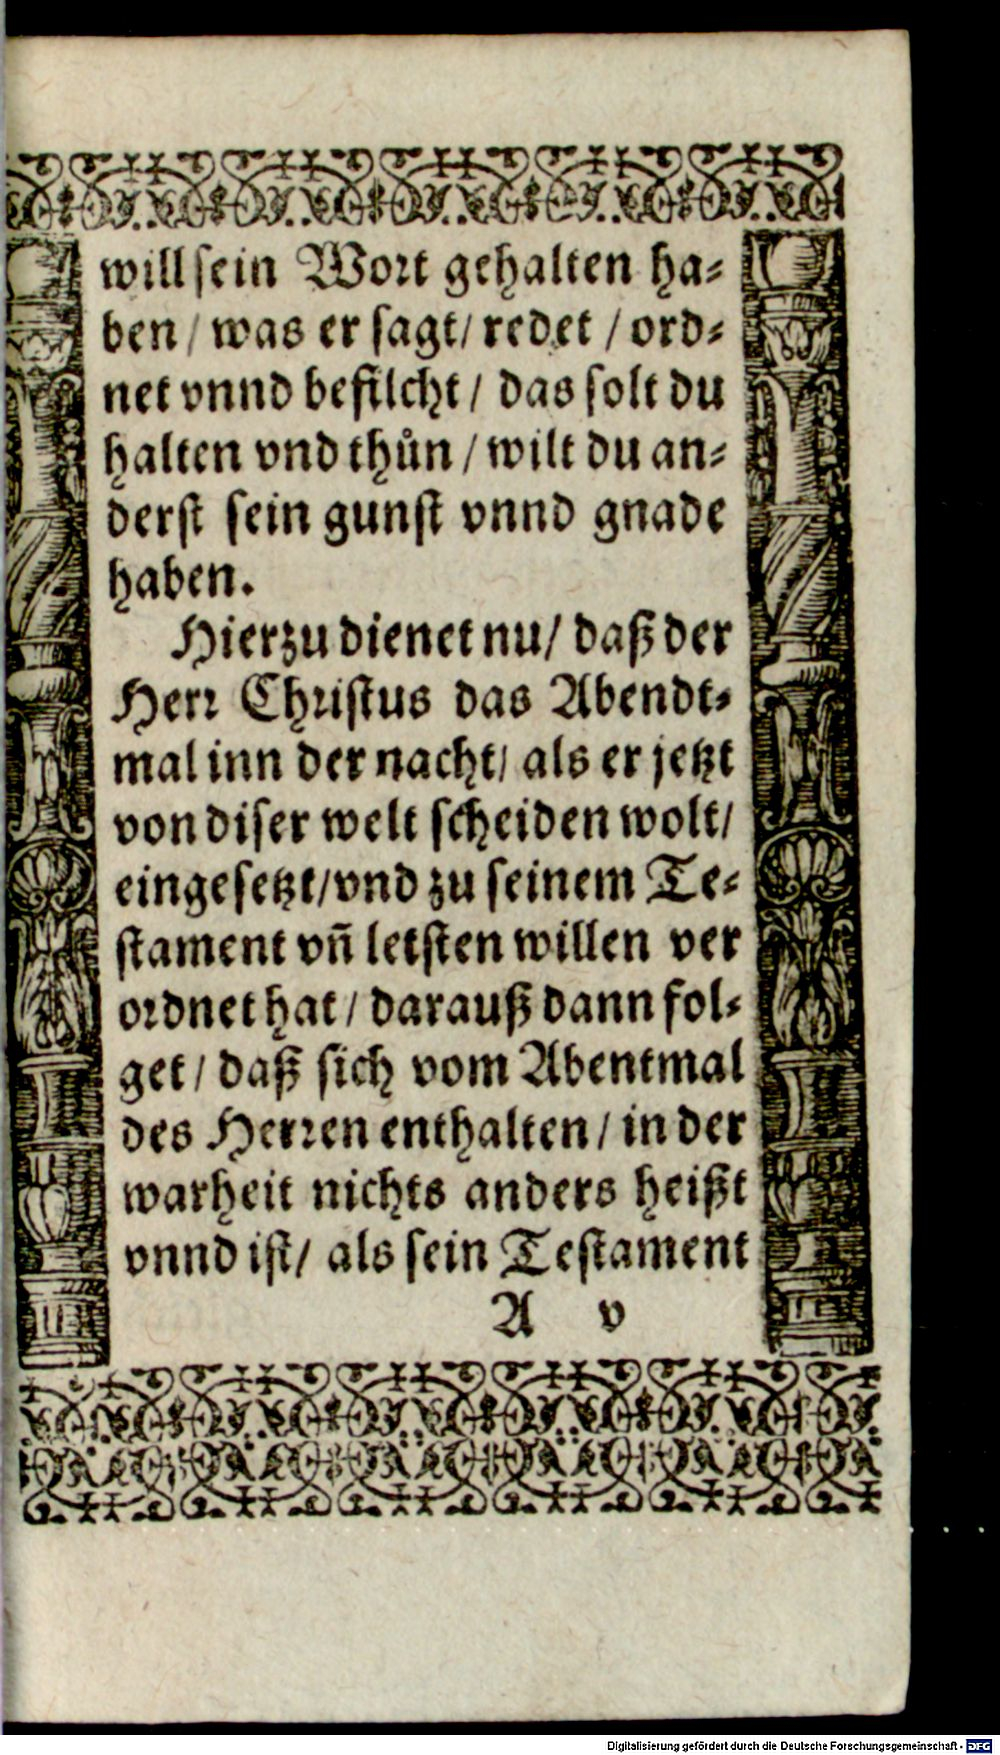 will sein Wort gehalten ha-
ben / was er sagt / redet / ord-
net vnnd befilcht / das solt du
halten vnd thůn / wilt du an-
derst sein gunst vnnd gnade
haben.
Hierzu dienet nu / daß der
Herr Christus das Abendt-
mal inn der nacht / als er jetzt
von diser welt scheiden wolt /
eingesetzt / vnd zu seinem Te-
stament vñ letsten willen ver
ordnet hat / darauß dann fol-
get / daß sich vom Abentmal
des Herren enthalten / in der
warheit nichts anders heißt
vnnd ist / als sein Testament
A v
Digitalisierung gefördert durch die Deutsche Forschungsgemeinschaft - DFG